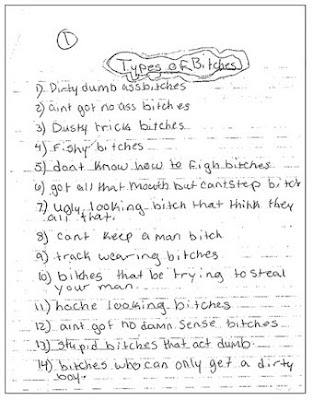 1
Types of Bitches
1) Dirty dumb ass bitches
2) aint got no ass bitches
3) Dusty tricks bitches
4) Fishy bitches
5) dont know how to figh bitches
6) got all that mouth but cant step bitch
7) ugly looking bitch that think they
all that.
8) cant keep a man bitch
9) track wearing bitches
10) bitches that be trying to steal
your man.
11) hoche looking bitches
12) aint got no damn sense bitches
13) stupid bitches that act dumb.
14) bitches who can only get a dirty
boy.